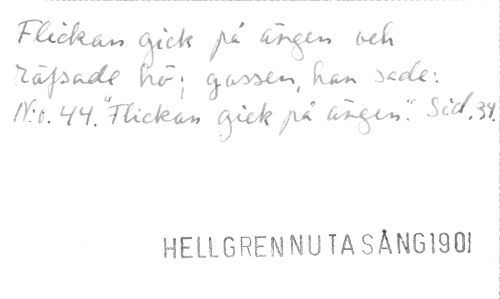 Flickan gick på ängen och
räfsade hö; gossen, han sade:
N:o. 44. "Flickan gick på ängen". Sid. 39.
HELLGREN NUTA SÅNG 1901